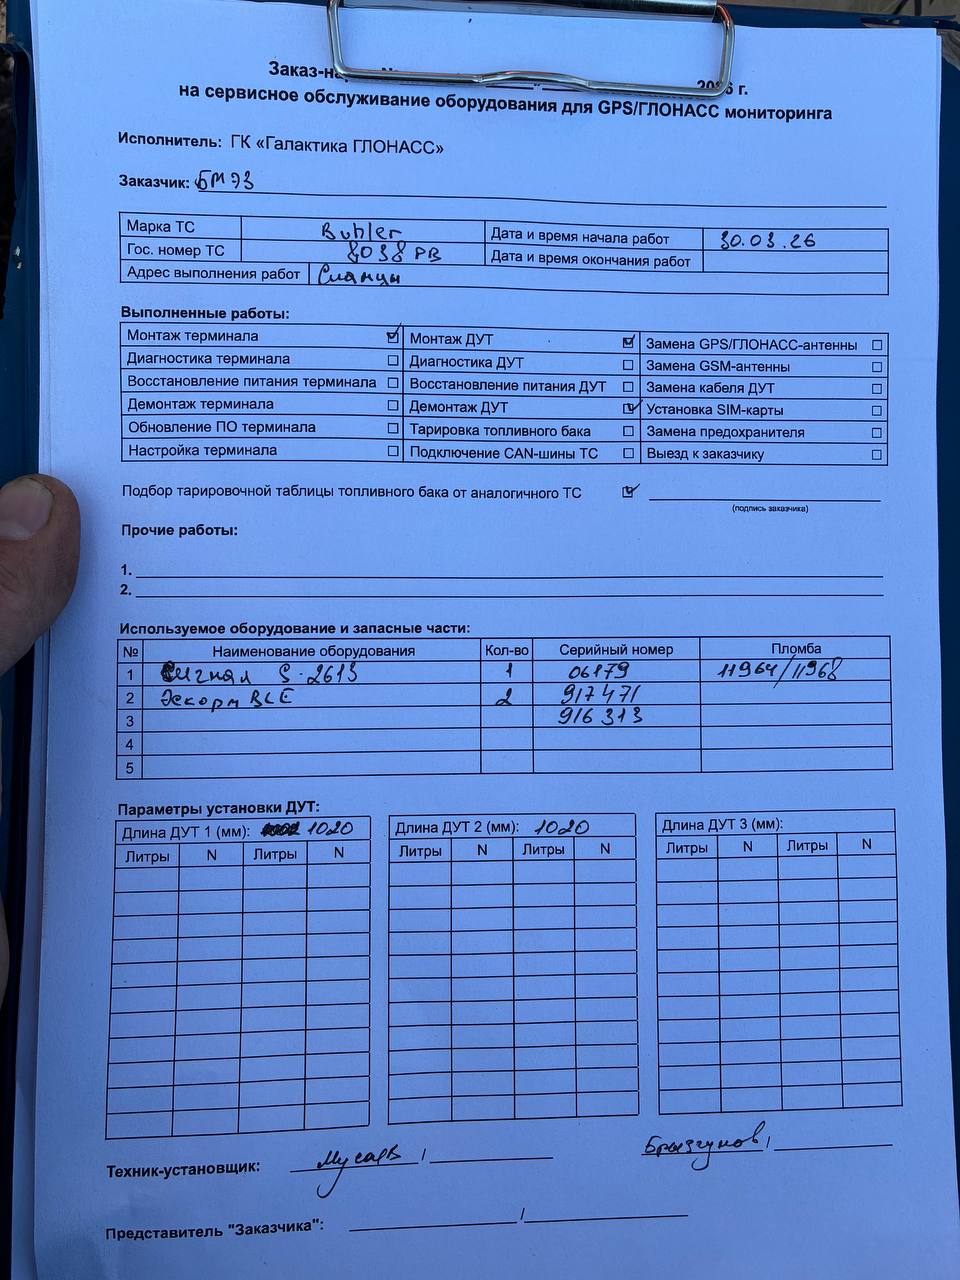 Заказ-на № 2026 г.
на сервисное обслуживание оборудования для GPS/ГЛОНАСС мониторинга
Исполнитель: ГК «Галактика ГЛОНАСС»
Заказчик: БМЭЗ
Марка ТС Buhler Дата и время начала работ 30.03.26
Гос. номер ТС 8038 РВ Дата и время окончания работ
Адрес выполнения работ Сланцы
Выполненные работы:
Монтаж терминала ☑ Монтаж ДУТ ☑ Замена GPS/ГЛОНАСС-антенны ☐
Диагностика терминала ☐ Диагностика ДУТ ☐ Замена GSM-антенны ☐
Восстановление питания терминала ☐ Восстановление питания ДУТ ☐ Замена кабеля ДУТ ☐
Демонтаж терминала ☐ Демонтаж ДУТ ☑ Установка SIM-карты ☐
Обновление ПО терминала ☐ Тарировка топливного бака ☐ Замена предохранителя ☐
Настройка терминала ☐ Подключение CAN-шины ТС ☐ Выезд к заказчику ☐
Подбор тарировочной таблицы топливного бака от аналогичного ТС ☑
(подпись заказчика)
Прочие работы:
1.
2.
Используемое оборудование и запасные части:
№ Наименование оборудования Кол-во Серийный номер Пломба
1 Сигнал S-2613 1 06179 11964/11968
2 Эскорт BLE 2 917471
3 916313
4
5
Параметры установки ДУТ:
Длина ДУТ 1 (мм): 1020 Длина ДУТ 2 (мм): 1020 Длина ДУТ 3 (мм):
Литры N Литры N Литры N Литры N Литры N Литры N
Техник-установщик: Мусаев / Брызгунов /
Представитель "Заказчика": /